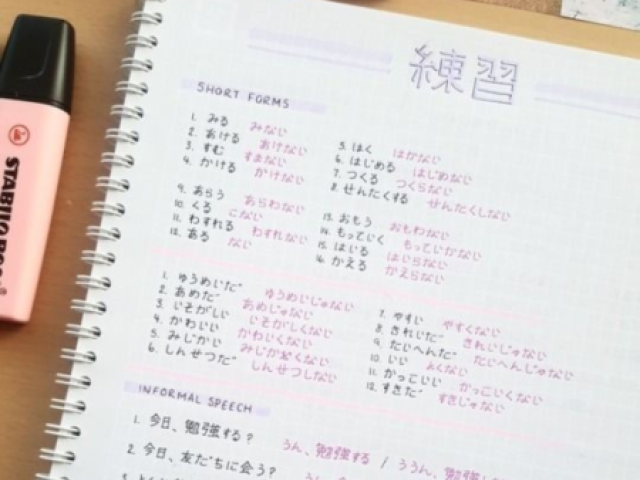 練習
SHORT FORMS
1. みる みない
2. あける あけない
3. すむ すまない
4. かける かけない
5. はく はかない
6. はじめる はじめない
7. つくる つくらない
8. せんたくする せんたくしない
9. あらう あらわない
10. くる こない
11. わすれる わすれない
12. ある ない
13. おもう おもわない
14. もっていく もっていかない
15. はいる はいらない
16. かえる かえらない
1. ゆうめいだ ゆうめいじゃない
2. あめだ あめじゃない
3. いそがしい いそがしくない
4. かわいい かわいくない
5. みじかい みじかくない
6. しんせつだ しんせつしない
7. やすい やすくない
8. きれいだ きれいじゃない
9. たいへんだ たいへんじゃない
10. いい よくない
11. かっこいい かっこいくない
12. すきだ すきじゃない
INFORMAL SPEECH
1. 今日、勉強する? うん、勉強する / ううん、勉強し
2. 今日、友だちに会う?
STABILO BOSS